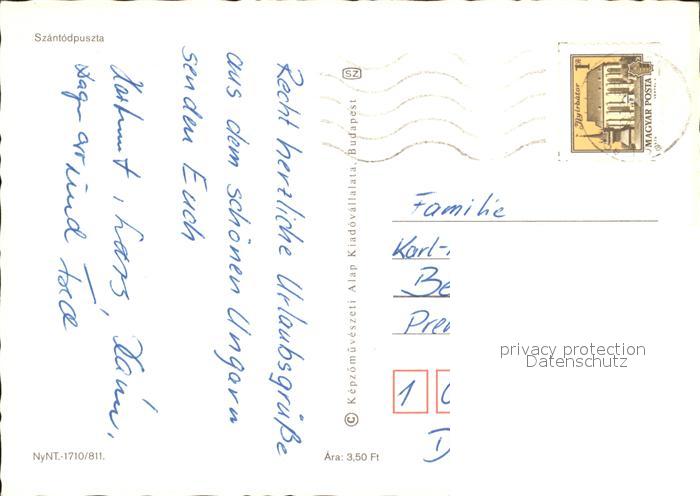 Szántódpuszta
Recht herzliche Urlaubsgrüße
aus dem schönen Ungarn
senden Euch
Hartmut, Lars,
und
SZ
© Képzőművészeti Alap Kiadóvállalata, Budapest
1 Ft
Nyírbátor
MAGYAR POSTA
Familie
Karl-
Be
Pre
1
D
privacy protection
Datenschutz
NyNT.-1710/811.
Ára: 3,50 Ft